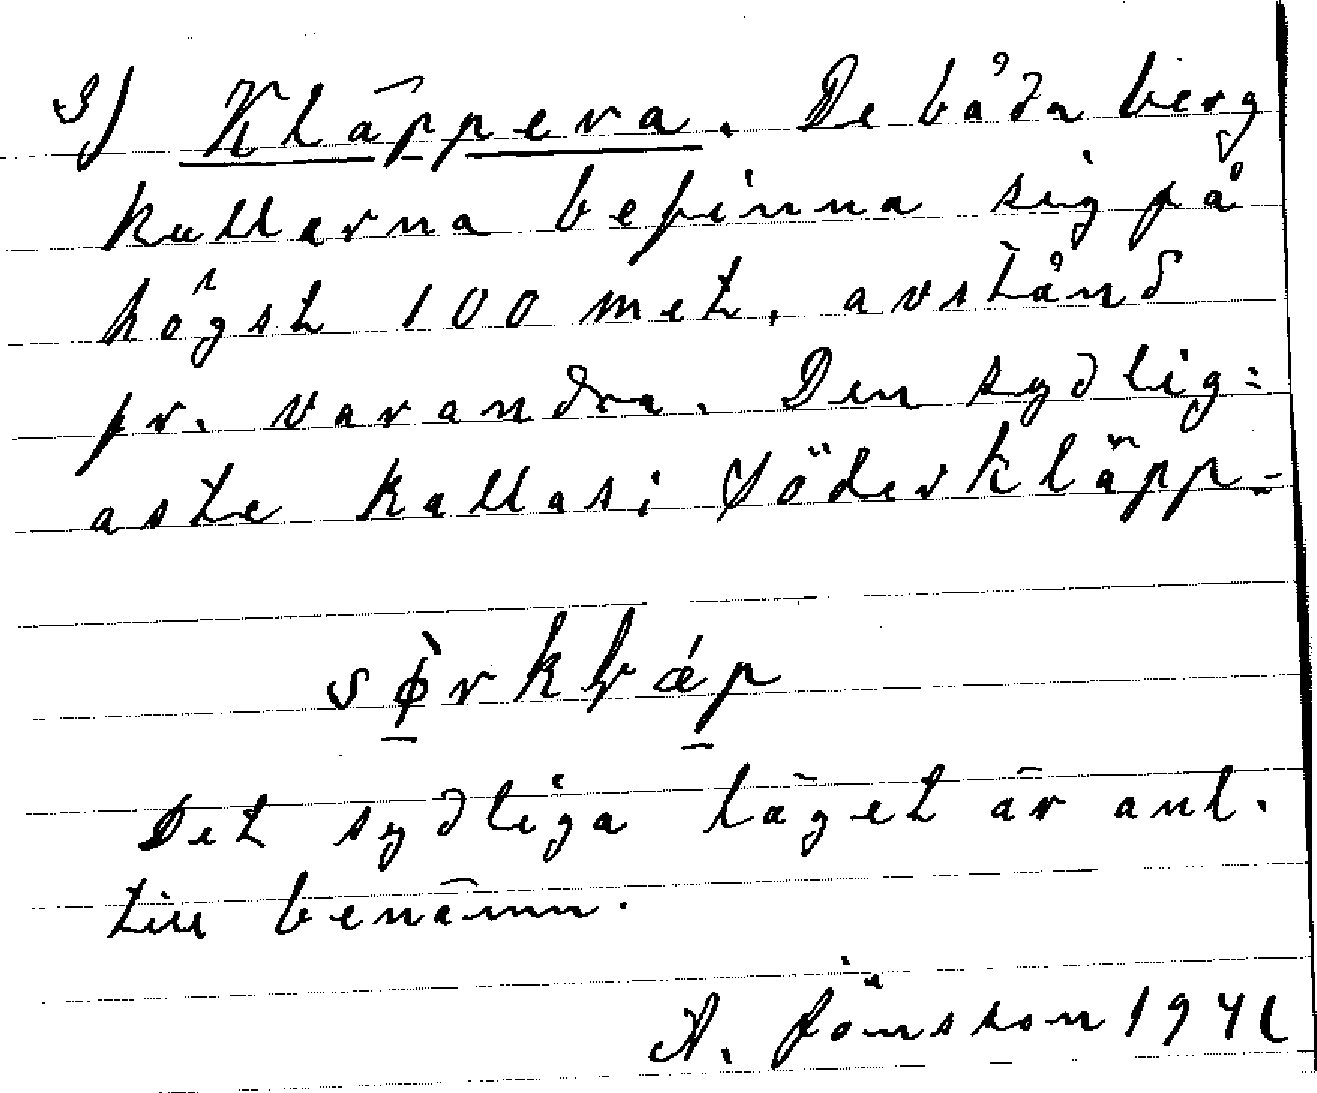 3) Kläppera. De båda berg
kullerna befinna sig på
högst 100 met. avstånd
fr. varandra. Den sydlig=
aste kallas: Söderkläpp=
Det sydliga läget är anl.
till benämn.
A. Jönsson 1941